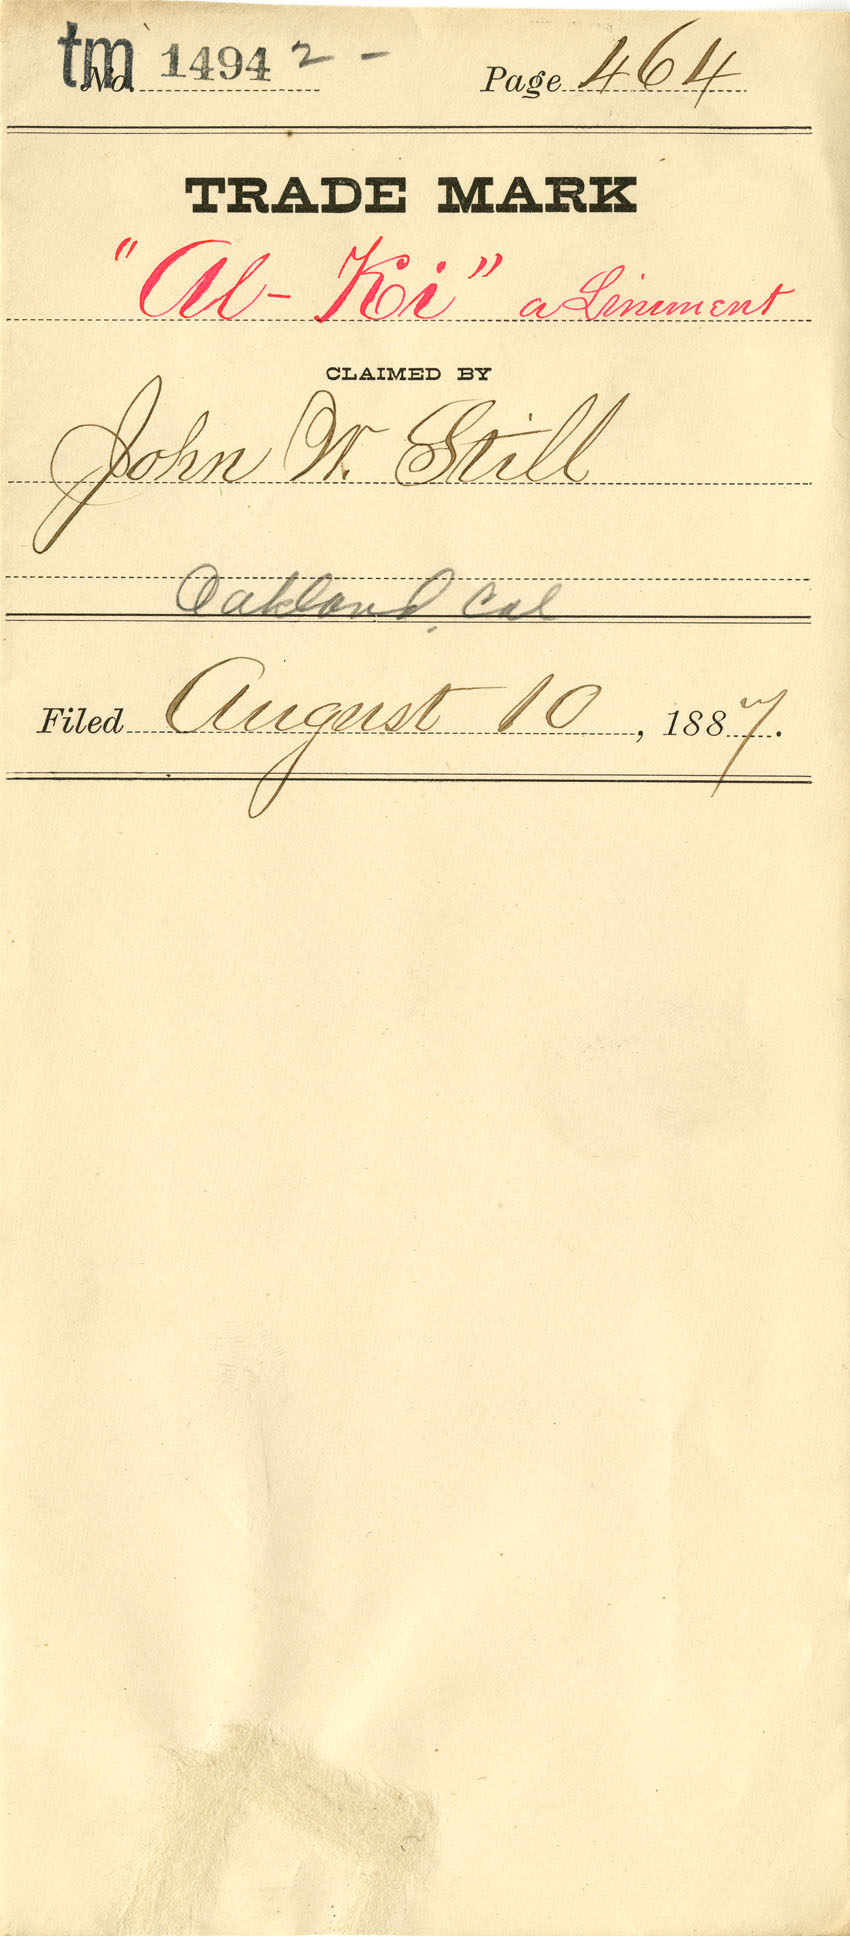 tm No. 1494 2 - Page 464
TRADE MARK
"Al-Ki" a Liniment
CLAIMED BY
John W. Still
Oakland, Cal
Filed August 10, 1887.